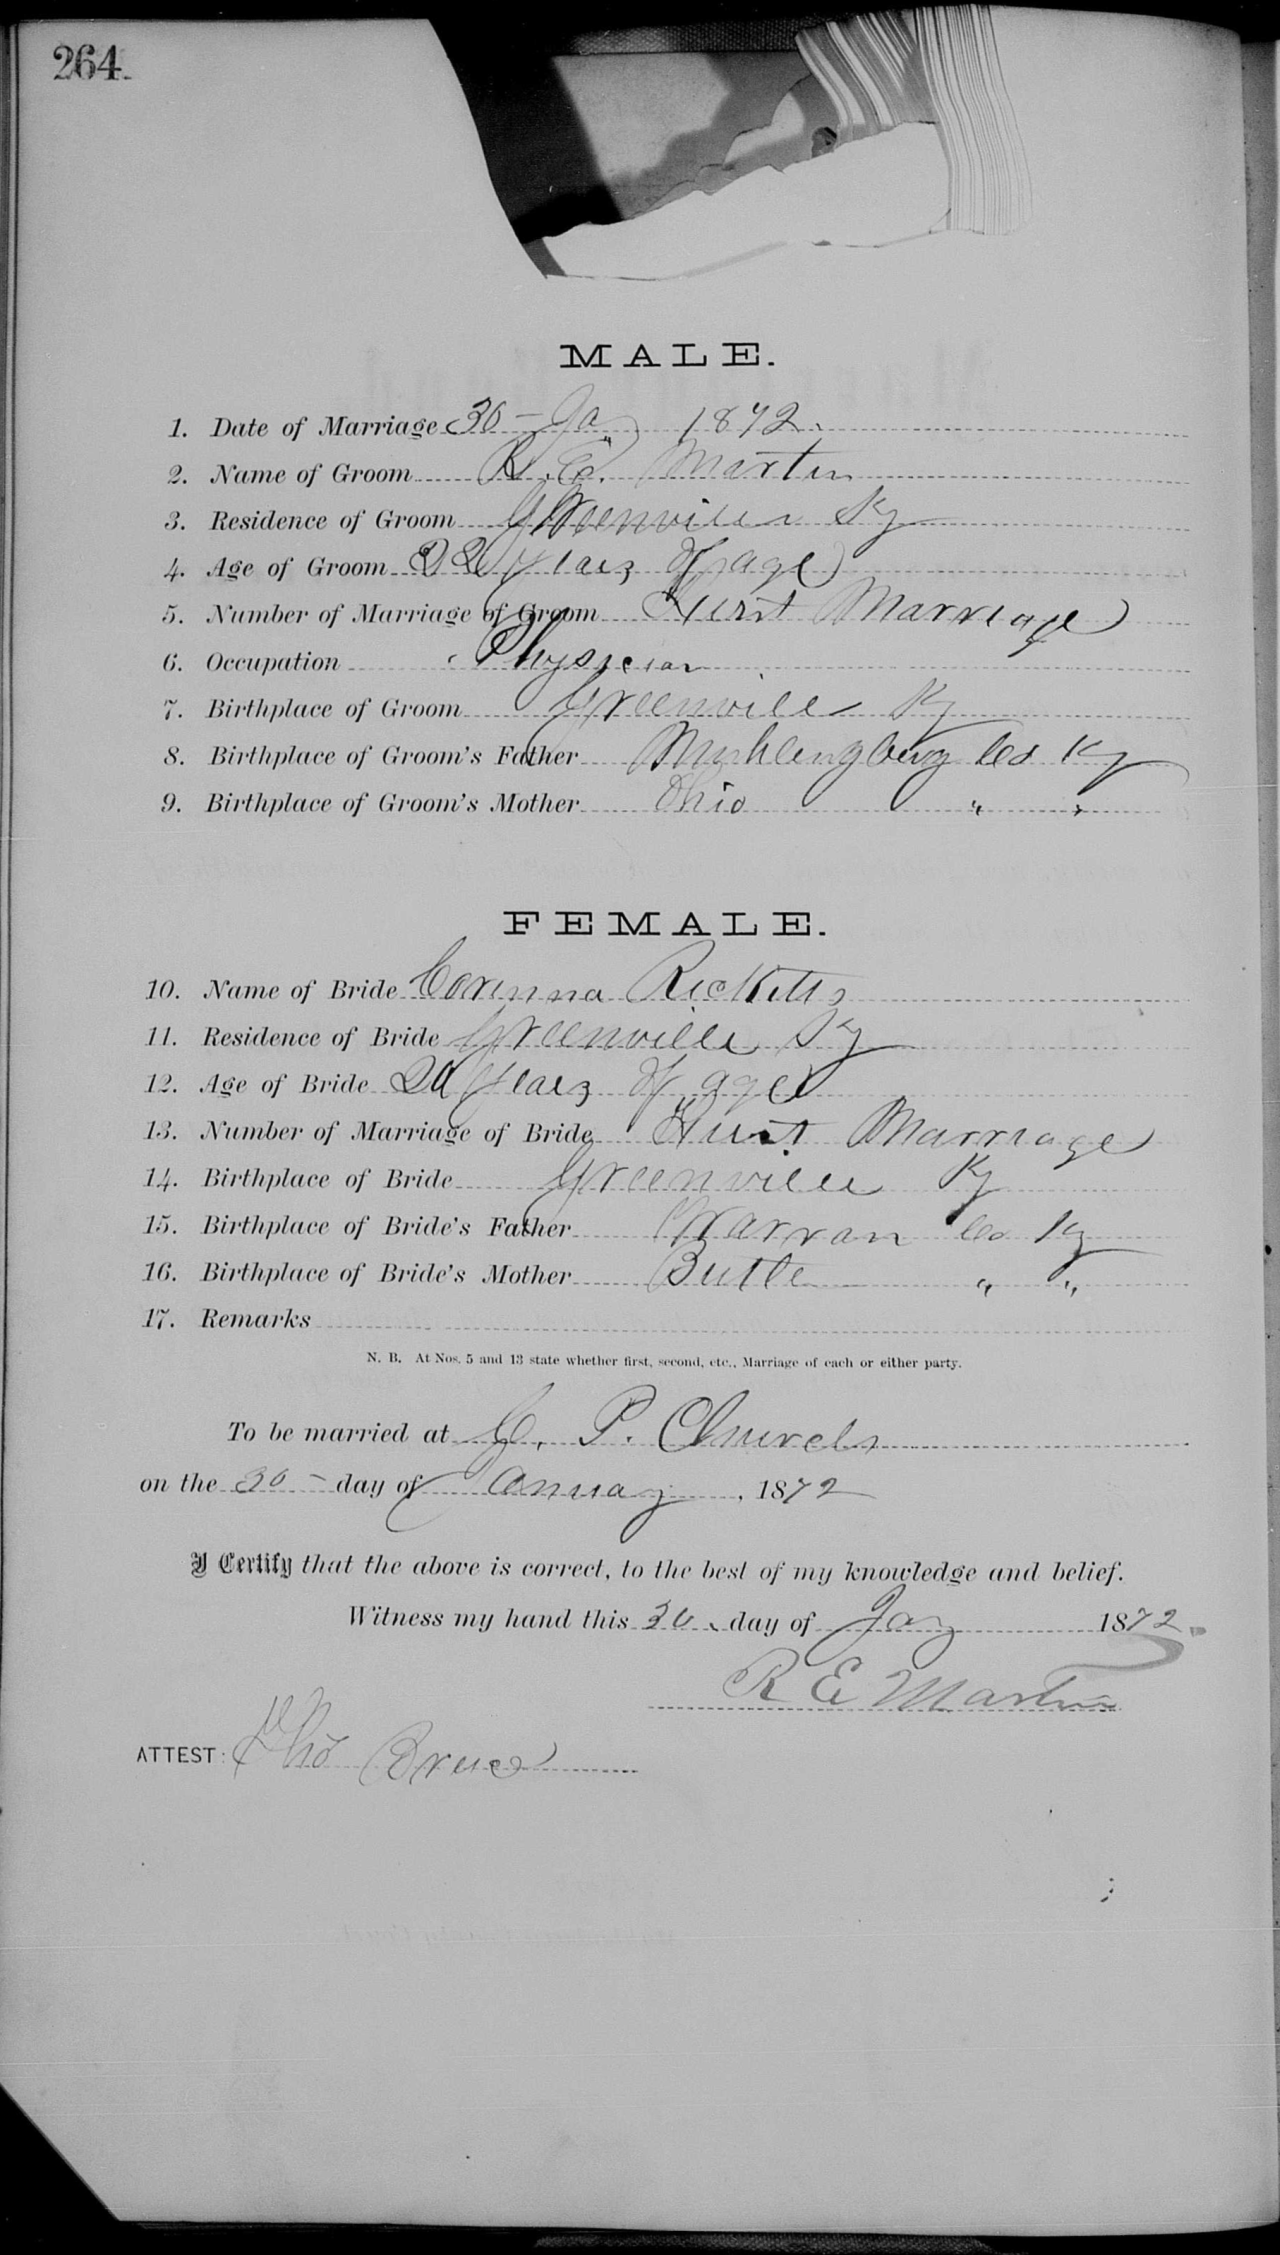 264.
MALE.
1. Date of Marriage 30 - Jay 1872.
2. Name of Groom R. Ed. Martin
3. Residence of Groom Greenville Ky
4. Age of Groom 22 Years of age
5. Number of Marriage of Groom First Marriage
6. Occupation Physician
7. Birthplace of Groom Greenville Ky
8. Birthplace of Groom's Father Muhlengberg Co Ky
9. Birthplace of Groom's Mother Ohio " "
FEMALE.
10. Name of Bride Corinna Ricketts
11. Residence of Bride Greenville Ky
12. Age of Bride Years of age
13. Number of Marriage of Bride First Marriage
14. Birthplace of Bride Greenville Ky
15. Birthplace of Bride's Father Warran Co Ky
16. Birthplace of Bride's Mother Butler " "
17. Remarks
N. B. At Nos. 5 and 13 state whether first, second, etc., Marriage of each or either party.
To be married at C. P. Church
on the 30 - day of January, 1872
I Certify that the above is correct, to the best of my knowledge and belief.
Witness my hand this 30 day of Jay 1872.
R E Martin
ATTEST: Tho Bruce